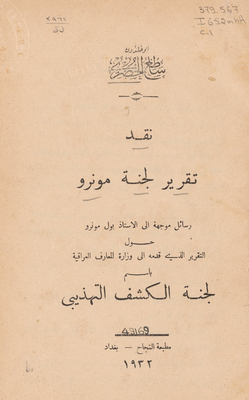 379.567
I652nH
C.1
ابو خلدون
ساطع الحصري
نقد
تقرير لجنة مونرو
رسائل موجهة الى الاستاذ بول مونرو
حول
التقرير الذي قدمه الى وزارة المعارف العراقية
باسم
لجنة الكشف التهذيبي
43169
مطبعة النجاح — بغداد
١٩٣٢